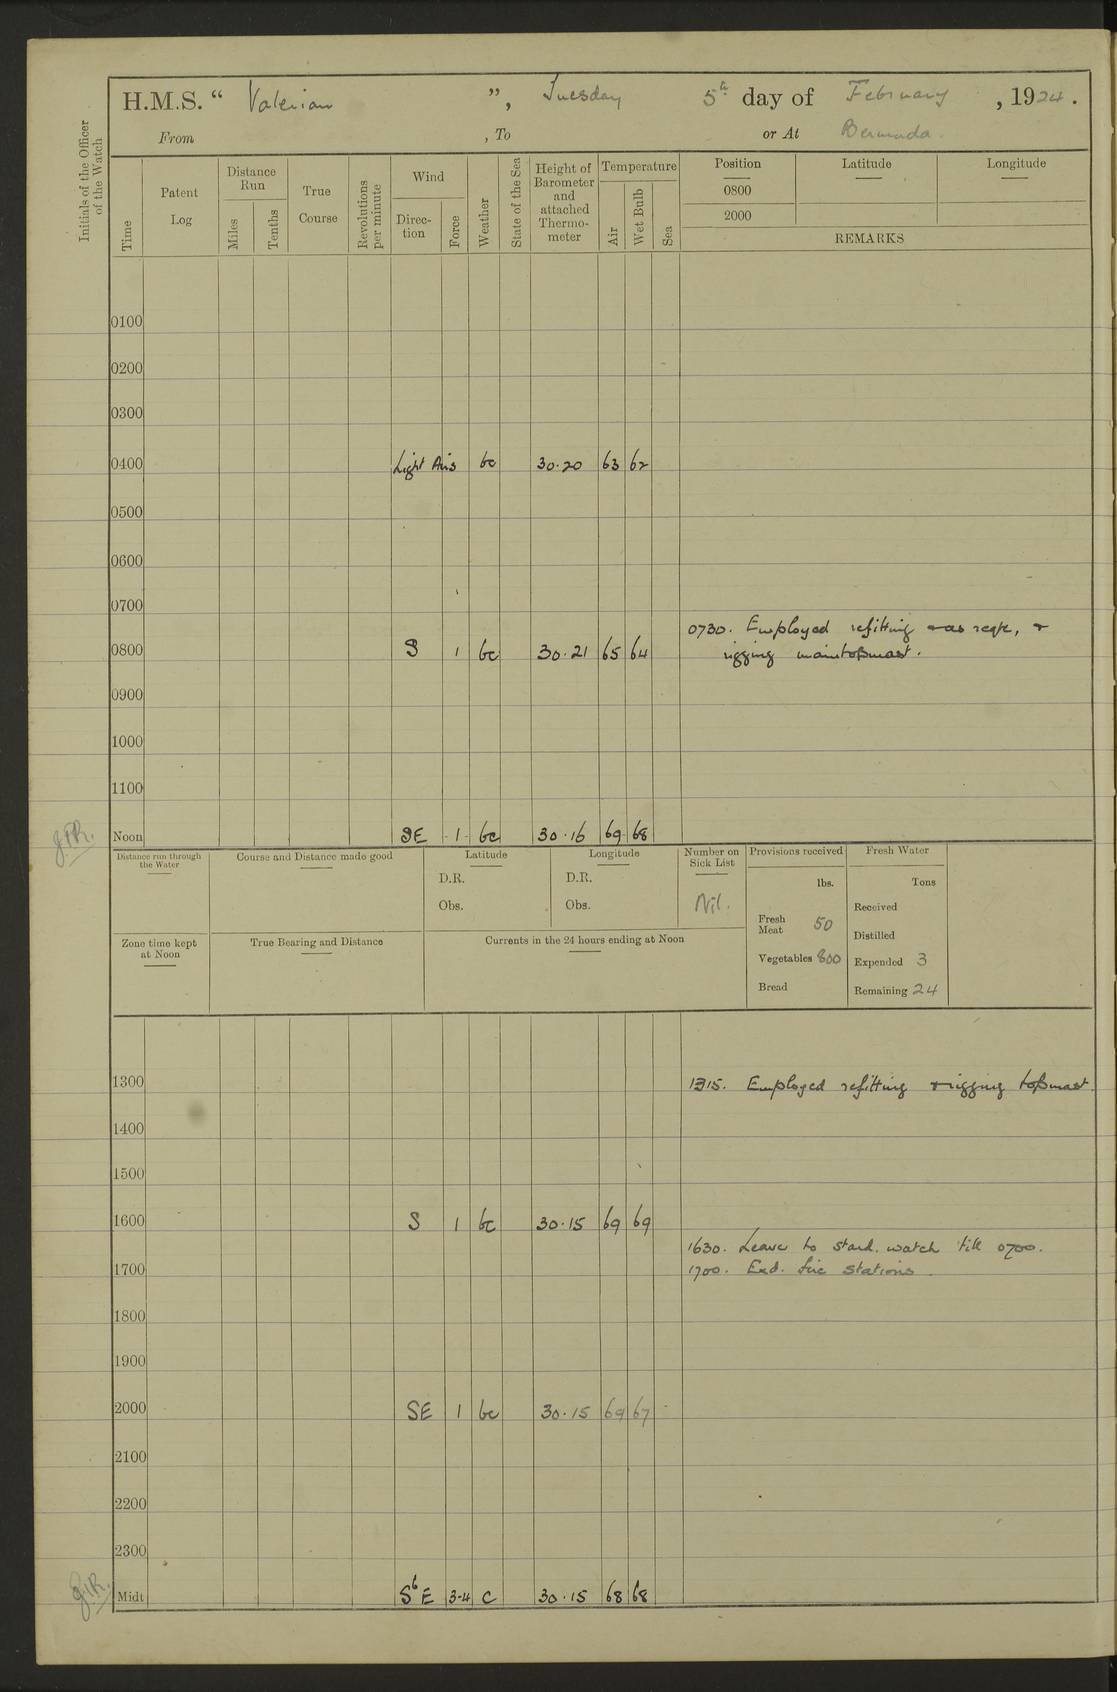 H.M.S. “ Valerian ”, Tuesday 5th day of February, 1924.
From , To or At Bermuda.
Initials of the Officer of the Watch
Time
Patent Log
Distance Run
Miles
Tenths
True Course
Revolutions per minute
Wind
Direc-tion
Force
Weather
State of the Sea
Height of Barometer and attached Thermo-meter
Temperature
Air
Wet Bulb
Sea
Position Latitude Longitude
0800
2000
REMARKS
0100
0200
0300
0400 Light Airs bc 30.20 63 62
0500
0600
0700
0730. Employed refitting as reqte, &
0800 S 1 bc 30.21 65 64 rigging maintopmast.
0900
1000
1100
Noon SE 1 bc 30.16 69 68
Distance run through the Water
Course and Distance made good
Latitude
D.R.
Obs.
Longitude
D.R.
Obs.
Number on Sick List
Nil.
Provisions received
lbs.
Fresh Meat 50
Vegetables 800
Bread
Fresh Water
Tons
Received
Distilled
Expended 3
Remaining 24
Zone time kept at Noon
True Bearing and Distance
Currents in the 24 hours ending at Noon
1300 1315. Employed refitting & rigging topmast.
1400
1500
1600 S 1 bc 30.15 69 69
1630. Leave to stard. watch till 0700.
1700 1700. Exd. fire stations.
1800
1900
2000 SE 1 bc 30.15 69 67
2100
2200
2300
Midt SbE 3-4 c 30.15 68 68